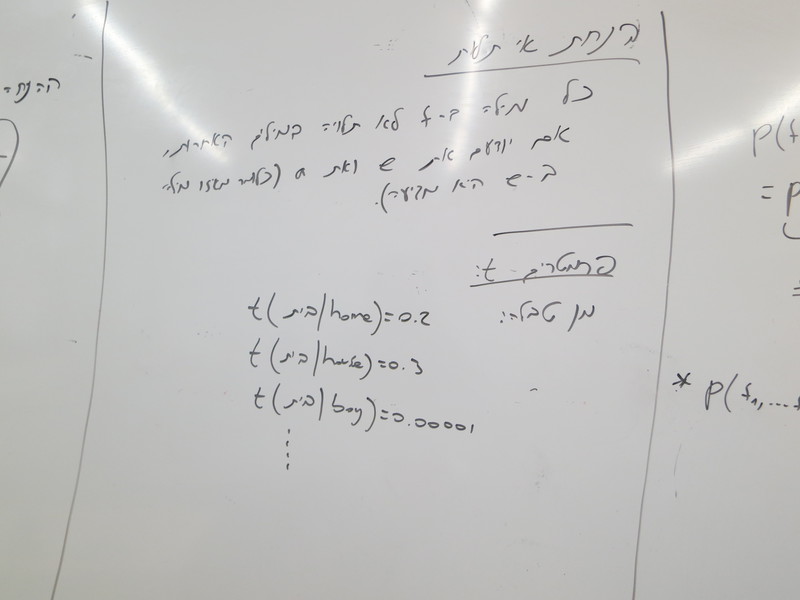 הנחת אי תלות
כל מילה ב-f לא תלויה במילים האחרות,
אם יודעים את e ואת a (כלומר מאיזו מילה
ב-e היא מגיעה).
פרמטרים - t:
מן טבלה:
t(בית|home)=0.2
t(בית|house)=0.3
t(בית|boy)=0.00001
הנחה
p(f
= p
=
* p(f₁,...f